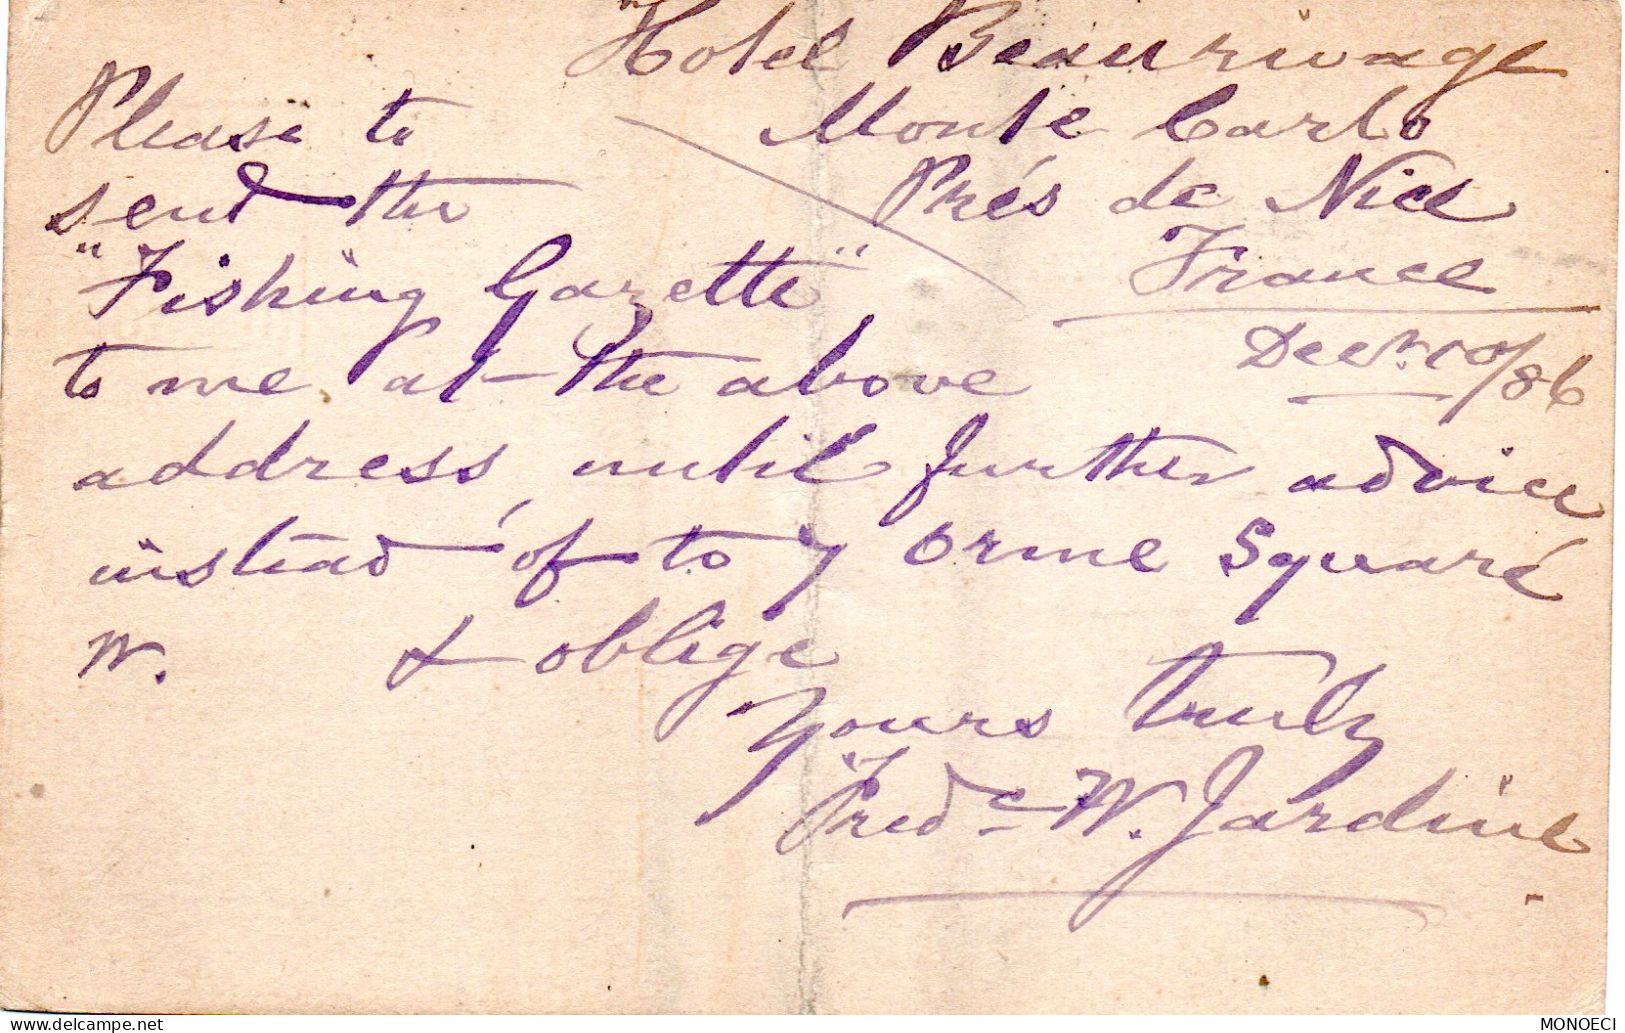 Hotel Beaurivage
Monte Carlo
Prés de Nice
France
Decr. 10/86
Please to
send the
"Fishing Gazette"
to me at the above
address, until further advice
instead of to 7 Orme Square
W. & oblige
Yours truly
Fredc W. Jardine
delcampe.net
MONOECI